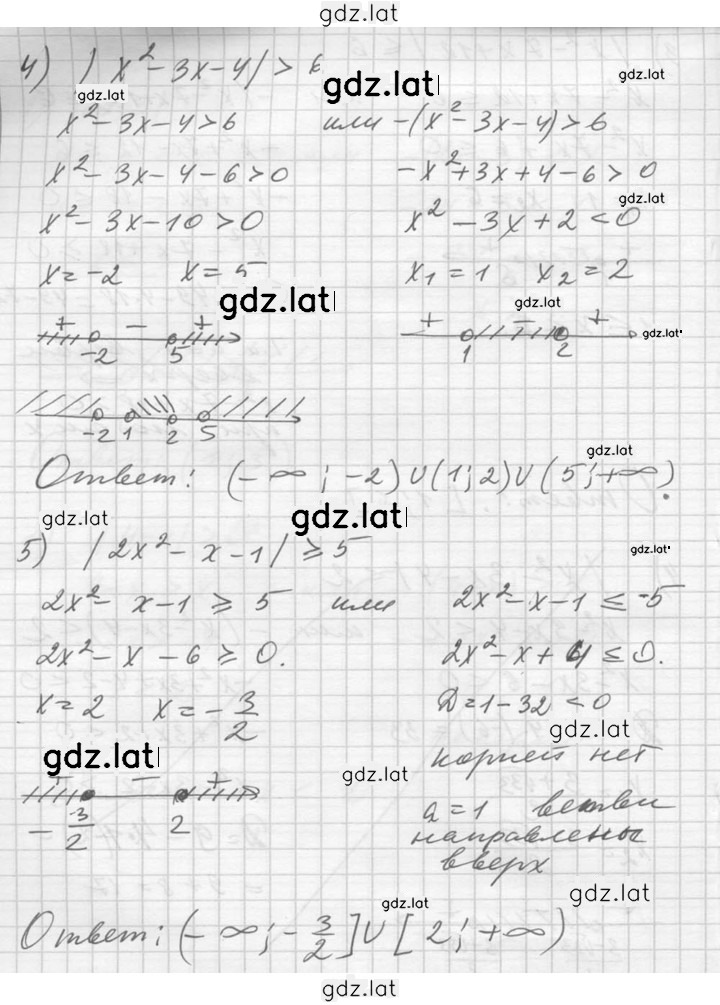 gdz.lat
4) |x² - 3x - 4| > 6 gdz.lat
gdz.lat gdz.lat
x² - 3x - 4 > 6 или -(x² - 3x - 4) > 6
x² - 3x - 4 - 6 > 0 -x² + 3x + 4 - 6 > 0
gdz.lat
x² - 3x - 10 > 0 x² - 3x + 2 < 0
x = -2 x = 5 x₁ = 1 x₂ = 2
gdz.lat gdz.lat
+ - + + - +
gdz.lat
-2 5 1 2
-2 1 2 5
gdz.lat
Ответ: (-∞; -2) ∪ (1; 2) ∪ (5; +∞).
gdz.lat gdz.lat
5) |2x² - x - 1| ≥ 5 gdz.lat
2x² - x - 1 ≥ 5 или 2x² - x - 1 ≤ -5
2x² - x - 6 ≥ 0. 2x² - x + 4 ≤ 0.
x = 2 x = -3/2 D = 1 - 32 < 0
gdz.lat
gdz.lat корней нет
gdz.lat
+ - +
-3/2 2 a = 1 ветви
направлены
вверх
gdz.lat gdz.lat
Ответ: (-∞; -3/2] ∪ [2; +∞)
gdz.lat